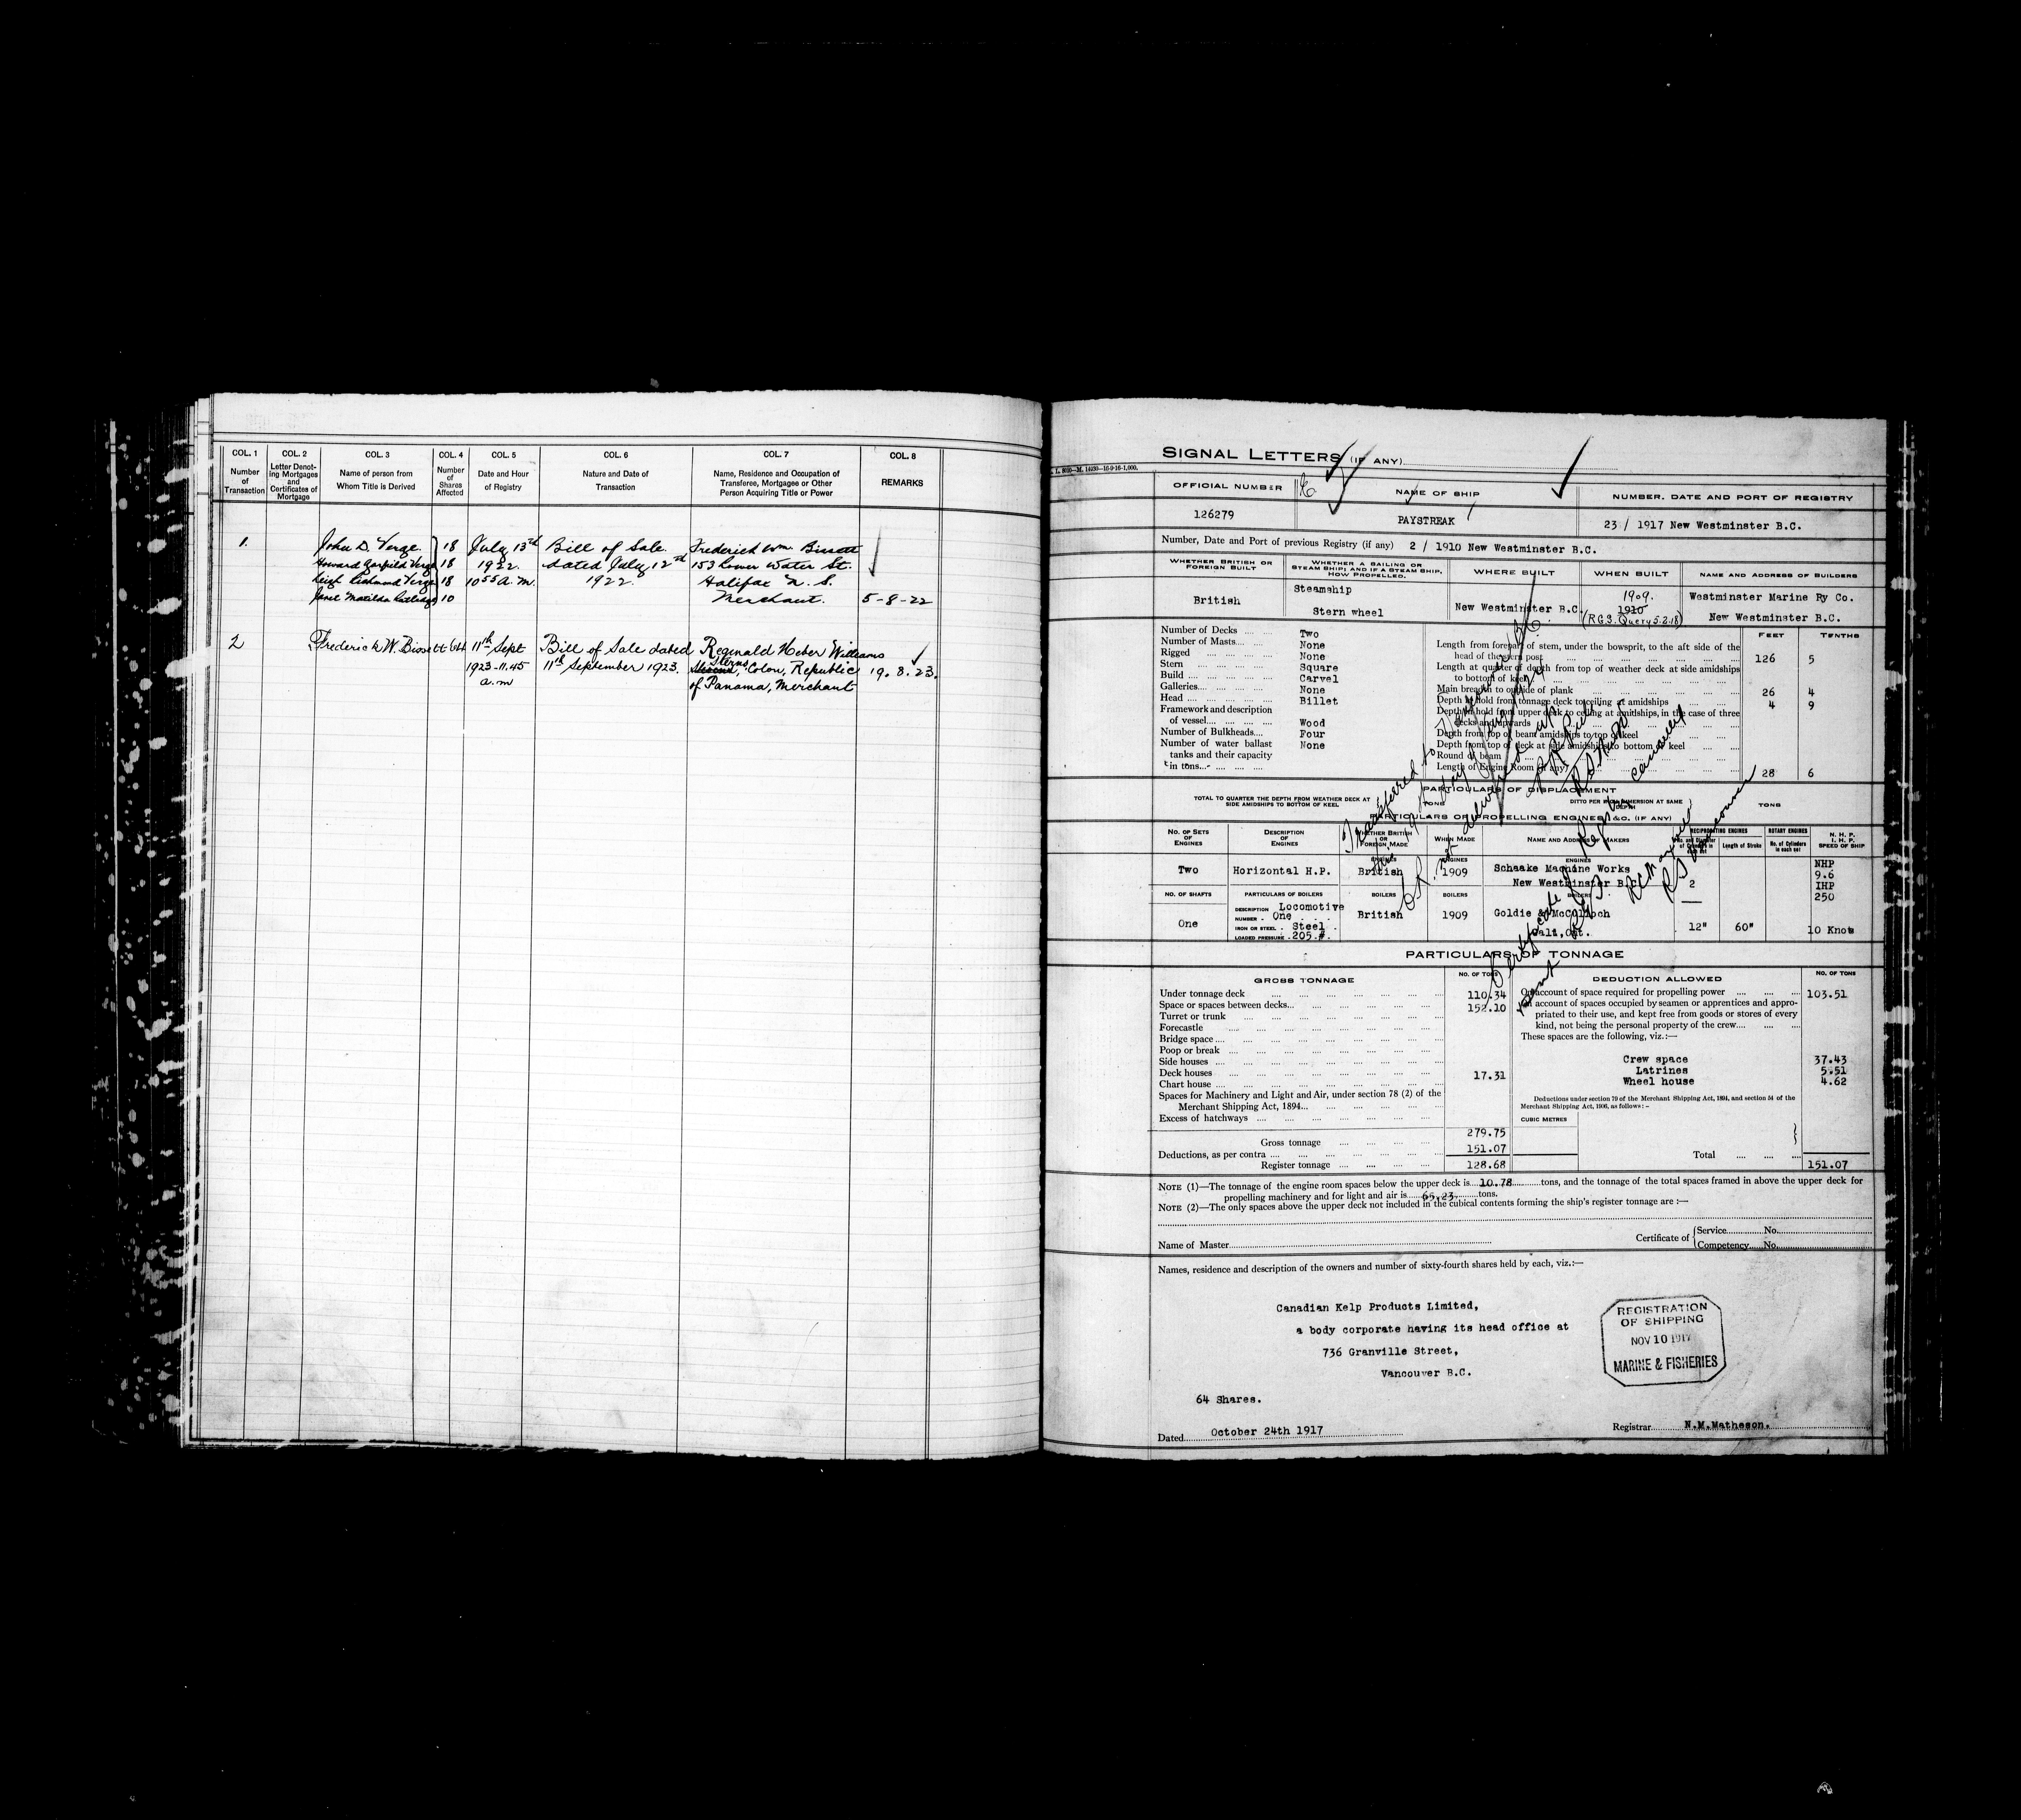 COL. 1 COL. 2 COL. 3 COL. 4 COL. 5 COL. 6 COL. 7 COL. 8
Number of Transaction
Letter Denoting Mortgages and Certificates of Mortgage
Name of person from Whom Title is Derived
Number of Shares Affected
Date and Hour of Registry
Nature and Date of Transaction
Name, Residence and Occupation of Transferee, Mortgagee or Other Person Acquiring Title or Power
REMARKS
1. John D. Verge. 18 July 13th Bill of Sale. Frederick Wm. Bissett
Howard Garfield Verge 18 1922. dated July 12th 153 Lower Water St.
Leigh Richmond Verge 18 10 55 a.m. 1922. Halifax N. S.
Janet Matilda Rutledge 10 Merchant. 5-8-22
2 Frederick W. Bissett 64 11th Sept Bill of Sale dated Reginald Heber Williams
1923-11.45 11th September 1923. Colon, Republic 19.8.23.
a.m of Panama, Merchant
SIGNAL LETTERS (IF ANY)
OFFICIAL NUMBER NAME OF SHIP NUMBER, DATE AND PORT OF REGISTRY
126279 PAYSTREAK 23 / 1917 New Westminster B.C.
Number, Date and Port of previous Registry (if any) 2 / 1910 New Westminster B.C.
WHETHER BRITISH OR FOREIGN BUILT
WHETHER A SAILING OR STEAM SHIP; AND IF A STEAM SHIP, HOW PROPELLED.
WHERE BUILT WHEN BUILT NAME AND ADDRESS OF BUILDERS
British
Steamship
Stern wheel
New Westminster B.C.
1909.
1910
(R.G.S. Query 5.2.18)
Westminster Marine Ry Co.
New Westminster B.C.
FEET TENTHS
Number of Decks Two
Number of Masts None
Rigged None
Stern Square
Build Carvel
Galleries None
Head Billet
Framework and description of vessel Wood
Number of Bulkheads Four
Number of water ballast tanks and their capacity in tons None
Length from forepart of stem, under the bowsprit, to the aft side of the head of the stern post 126 5
Length at quarter of depth from top of weather deck at side amidships to bottom of keel
Main breadth to outside of plank 26 4
Depth in hold from tonnage deck to ceiling at amidships 4 9
Depth in hold from upper deck to ceiling at amidships, in the case of three decks and upwards
Depth from top of beam amidships to top of keel
Depth from top of deck at side amidships to bottom of keel
Round of beam
Length of Engine Room (if any) 28 6
Transferred to Vancouver B.C.
Certificate of Regr cancelled
PARTICULARS OF DISPLACEMENT
TOTAL TO QUARTER THE DEPTH FROM WEATHER DECK AT SIDE AMIDSHIPS TO BOTTOM OF KEEL TONS
DITTO PER INCH IMMERSION AT SAME DEPTH TONS
PARTICULARS OF PROPELLING ENGINES &C. (IF ANY)
NO. OF SETS OF ENGINES
DESCRIPTION OF ENGINES
WHETHER BRITISH OR FOREIGN MADE
WHEN MADE
NAME AND ADDRESS OF MAKERS
RECIPROCATING ENGINES
Length of Stroke
ROTARY ENGINES
No. of Cylinders in each set
N. H. P. I. H. P. SPEED OF SHIP
Two Horizontal H.P. British 1909 Schaake Machine Works
New Westminster B.C. 2
NHP
9.6
IHP
250
NO. OF SHAFTS PARTICULARS OF BOILERS BOILERS BOILERS BOILERS
One
DESCRIPTION Locomotive
NUMBER One
IRON OR STEEL Steel
LOADED PRESSURE 205 #.
British 1909 Goldie & McCulloch
Galt, Ont. 12" 60" 10 Knots
PARTICULARS OF TONNAGE
GROSS TONNAGE NO. OF TONS DEDUCTION ALLOWED NO. OF TONS
Under tonnage deck 110.34
Space or spaces between decks 152.10
Turret or trunk
Forecastle
Bridge space
Poop or break
Side houses
Deck houses 17.31
Chart house
Spaces for Machinery and Light and Air, under section 78 (2) of the
Merchant Shipping Act, 1894
Excess of hatchways
Gross tonnage 279.75
Deductions, as per contra 151.07
Register tonnage 128.68
On account of space required for propelling power 103.51
On account of spaces occupied by seamen or apprentices and appropriated to their use, and kept free from goods or stores of every kind, not being the personal property of the crew
These spaces are the following, viz.:—
Crew space 37.43
Latrines 5.51
Wheel house 4.62
Deductions under section 79 of the Merchant Shipping Act, 1894, and section 54 of the Merchant Shipping Act, 1906, as follows:-
CUBIC METRES
Total 151.07
NOTE (1)—The tonnage of the engine room spaces below the upper deck is 10.78 tons, and the tonnage of the total spaces framed in above the upper deck for
propelling machinery and for light and air is 65.23 tons.
NOTE (2)—The only spaces above the upper deck not included in the cubical contents forming the ship's register tonnage are :—
Name of Master
Certificate of { Service No.
Competency No.
Names, residence and description of the owners and number of sixty-fourth shares held by each, viz.:—
Canadian Kelp Products Limited,
a body corporate having its head office at
736 Granville Street,
Vancouver B.C.
64 Shares.
REGISTRATION
OF SHIPPING
NOV 10 1917
MARINE & FISHERIES
Dated October 24th 1917
Registrar N.M.Matheson.